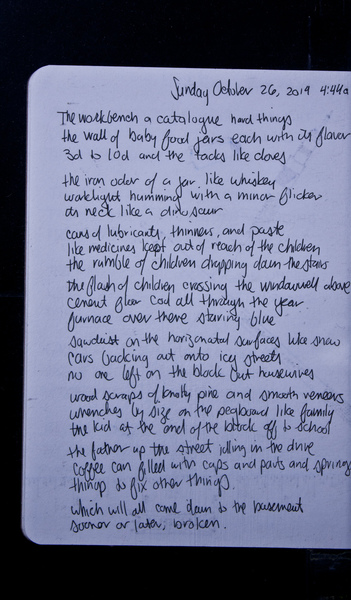 Sunday October 26, 2019 4:44a
The workbench a catalogue hard things
the wall of baby food jars each with its flavor
3d to 10d and the tacks like cloves
the iron odor of a jar like whiskey
worklight humming with a minor flicker
its neck like a dinosaur
cans of lubricants, thinners, and paste
like medicines kept out of reach of the children
the rumble of children dropping down the stairs
the flash of children crossing the windowwell above
cement floor cool all through the year
furnace over there staring blue
sawdust on the horizontal surfaces like snow
cars backing out onto icy streets
no one left on the block but housewives
wood scraps of knotty pine and smooth veneers
wrenches by size on the pegboard like family
the kid at the end of the block off to school
the father up the street idling in the drive
coffee can filled with caps and parts and springs
things to fix other things.
which will all come down to the basement
sooner or later, broken.